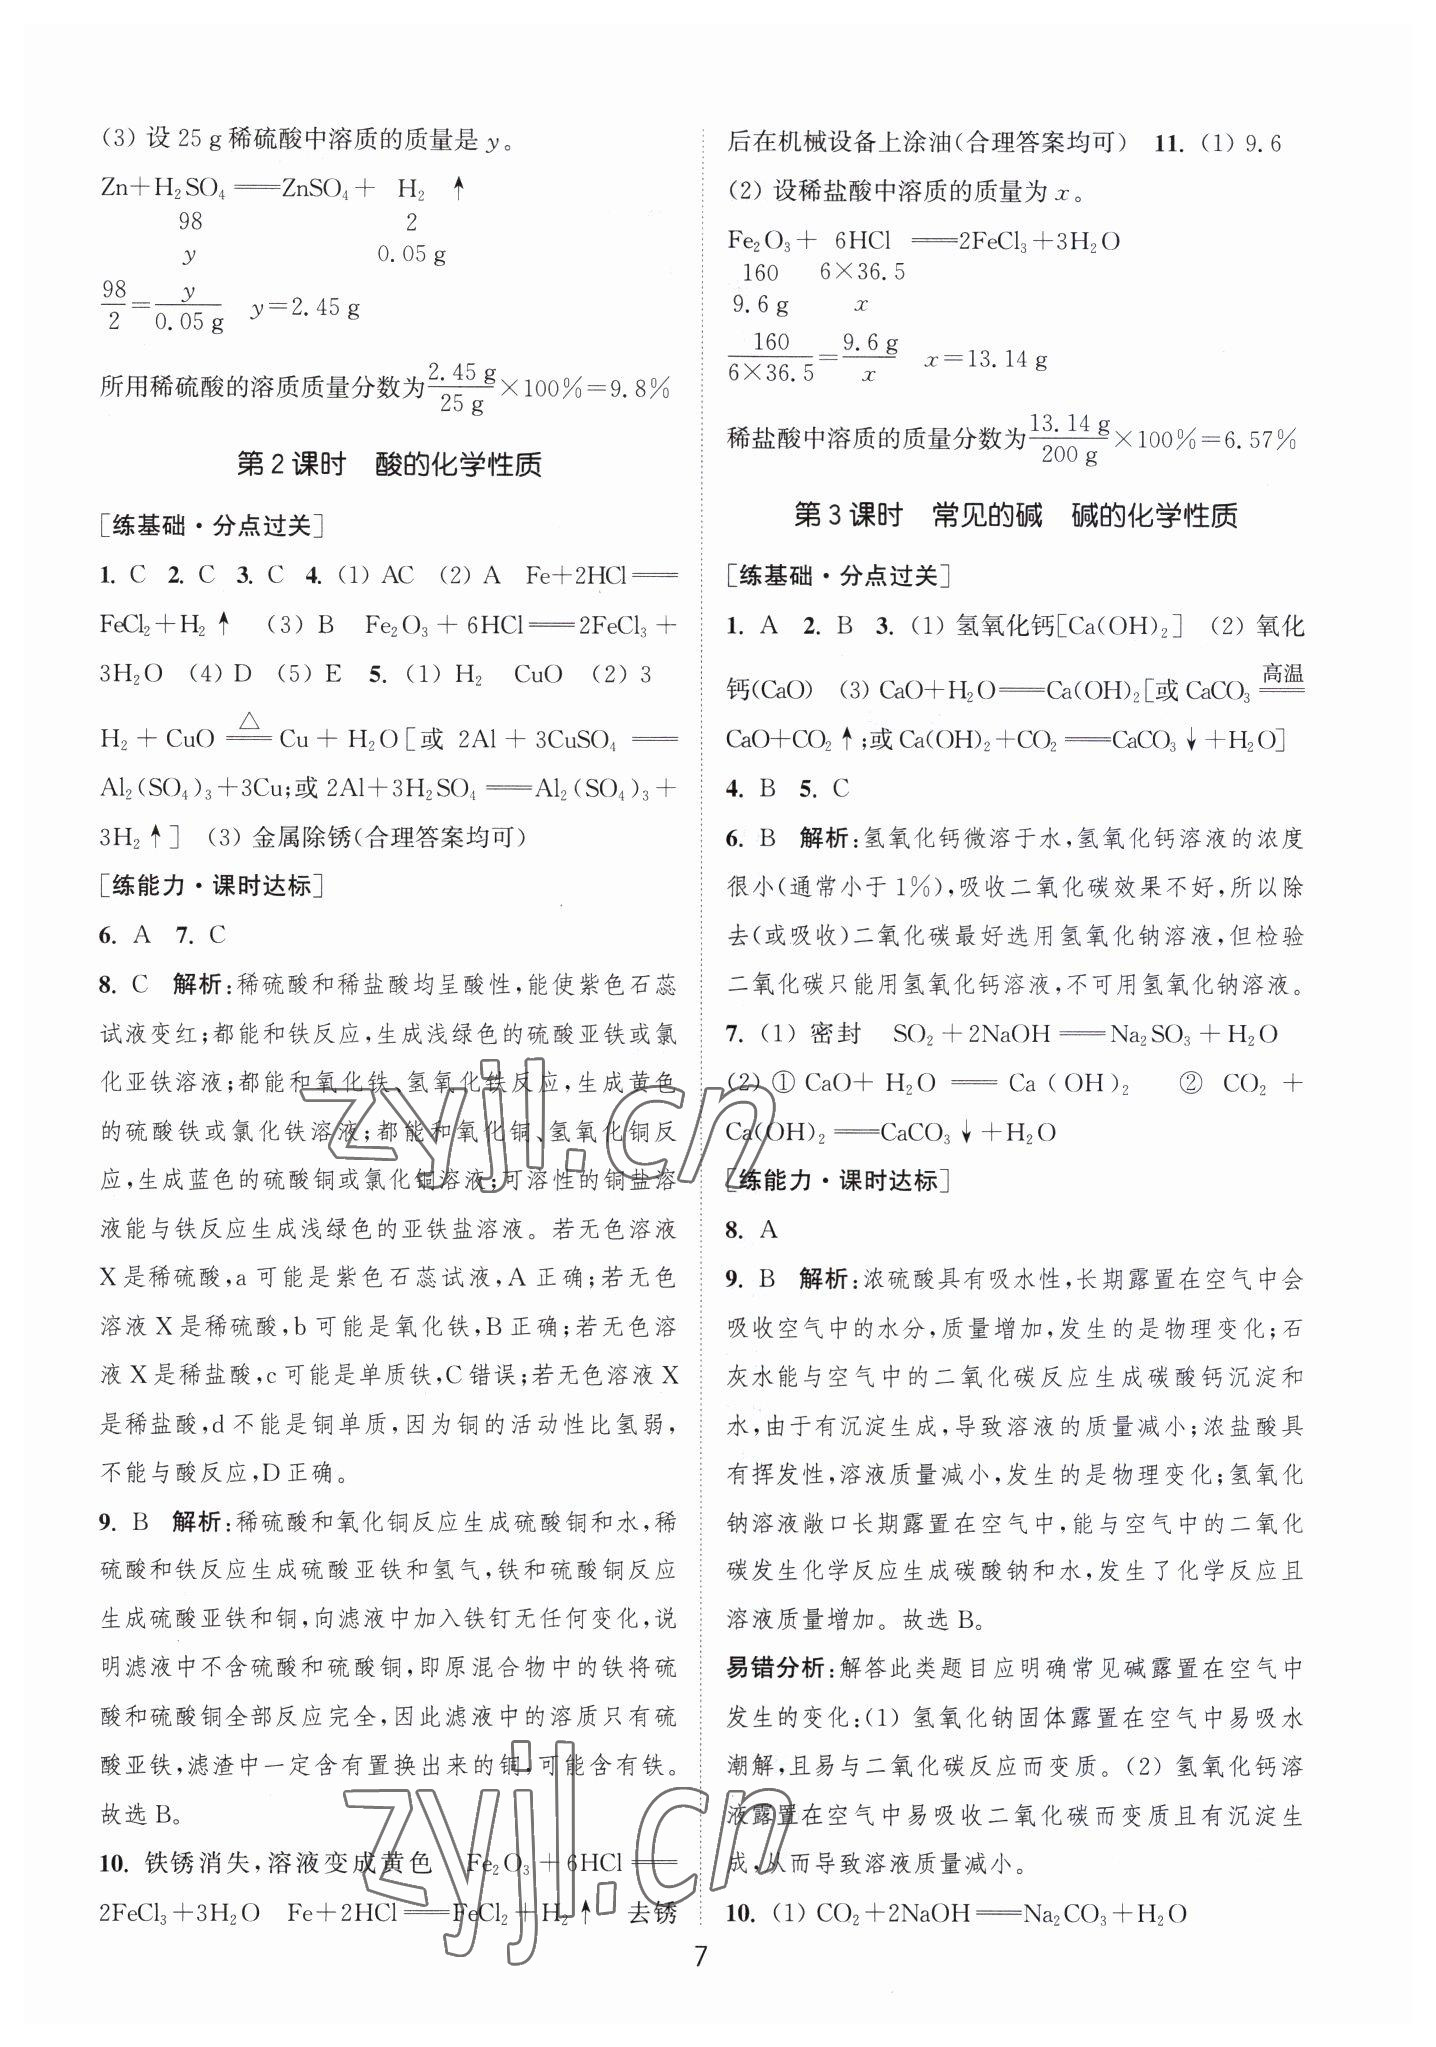 (3) 设 25 g 稀硫酸中溶质的质量是 y。
Zn+H₂SO₄══ZnSO₄+ H₂ ↑
98 2
y 0.05 g
98/2=y/0.05 g y=2.45 g
所用稀硫酸的溶质质量分数为2.45 g/25 g×100%=9.8%
第 2 课时 酸的化学性质
[练基础·分点过关]
1. C 2. C 3. C 4. (1) AC (2) A Fe+2HCl══
FeCl₂+H₂↑ (3) B Fe₂O₃+6HCl══2FeCl₃+
3H₂O (4) D (5) E 5. (1) H₂ CuO (2) 3
H₂+CuO══(△)Cu+H₂O[或 2Al+3CuSO₄══
Al₂(SO₄)₃+3Cu;或 2Al+3H₂SO₄══Al₂(SO₄)₃+
3H₂↑] (3) 金属除锈(合理答案均可)
[练能力·课时达标]
6. A 7. C
8. C 解析:稀硫酸和稀盐酸均呈酸性,能使紫色石蕊
试液变红;都能和铁反应,生成浅绿色的硫酸亚铁或氯
化亚铁溶液;都能和氧化铁、氢氧化铁反应,生成黄色
的硫酸铁或氯化铁溶液;都能和氧化铜、氢氧化铜反
应,生成蓝色的硫酸铜或氯化铜溶液;可溶性的铜盐溶
液能与铁反应生成浅绿色的亚铁盐溶液。若无色溶液
X是稀硫酸,a 可能是紫色石蕊试液,A 正确;若无色
溶液 X 是稀硫酸,b 可能是氧化铁,B 正确;若无色溶
液 X 是稀盐酸,c 可能是单质铁,C 错误;若无色溶液 X
是稀盐酸,d 不能是铜单质,因为铜的活动性比氢弱,
不能与酸反应,D 正确。
9. B 解析:稀硫酸和氧化铜反应生成硫酸铜和水,稀
硫酸和铁反应生成硫酸亚铁和氢气,铁和硫酸铜反应
生成硫酸亚铁和铜,向滤液中加入铁钉无任何变化,说
明滤液中不含硫酸和硫酸铜,即原混合物中的铁将硫
酸和硫酸铜全部反应完全,因此滤液中的溶质只有硫
酸亚铁,滤渣中一定含有置换出来的铜,可能含有铁。
故选 B。
10. 铁锈消失,溶液变成黄色 Fe₂O₃+6HCl══
2FeCl₃+3H₂O Fe+2HCl══FeCl₂+H₂↑ 去锈
后在机械设备上涂油(合理答案均可) 11. (1) 9.6
(2) 设稀盐酸中溶质的质量为 x。
Fe₂O₃+ 6HCl ══2FeCl₃+3H₂O
160 6×36.5
9.6 g x
160/6×36.5=9.6 g/x x=13.14 g
稀盐酸中溶质的质量分数为13.14 g/200 g×100%=6.57%
第 3 课时 常见的碱 碱的化学性质
[练基础·分点过关]
1. A 2. B 3. (1) 氢氧化钙[Ca(OH)₂] (2) 氧化
钙(CaO) (3) CaO+H₂O══Ca(OH)₂[或 CaCO₃══(高温)
CaO+CO₂↑;或 Ca(OH)₂+CO₂══CaCO₃↓+H₂O]
4. B 5. C
6. B 解析:氢氧化钙微溶于水,氢氧化钙溶液的浓度
很小(通常小于 1%),吸收二氧化碳效果不好,所以除
去(或吸收)二氧化碳最好选用氢氧化钠溶液,但检验
二氧化碳只能用氢氧化钙溶液,不可用氢氧化钠溶液。
7. (1) 密封 SO₂+2NaOH══Na₂SO₃+H₂O
(2) ① CaO+H₂O══Ca(OH)₂ ② CO₂+
Ca(OH)₂══CaCO₃↓+H₂O
[练能力·课时达标]
8. A
9. B 解析:浓硫酸具有吸水性,长期露置在空气中会
吸收空气中的水分,质量增加,发生的是物理变化;石
灰水能与空气中的二氧化碳反应生成碳酸钙沉淀和
水,由于有沉淀生成,导致溶液的质量减小;浓盐酸具
有挥发性,溶液质量减小,发生的是物理变化;氢氧化
钠溶液敞口长期露置在空气中,能与空气中的二氧化
碳发生化学反应生成碳酸钠和水,发生了化学反应且
溶液质量增加。故选 B。
易错分析:解答此类题目应明确常见碱露置在空气中
发生的变化:(1) 氢氧化钠固体露置在空气中易吸水
潮解,且易与二氧化碳反应而变质。(2) 氢氧化钙溶
液露置在空气中易吸收二氧化碳而变质且有沉淀生
成,从而导致溶液质量减小。
10. (1) CO₂+2NaOH══Na₂CO₃+H₂O
7
zyjl.cn
zyjl.cn